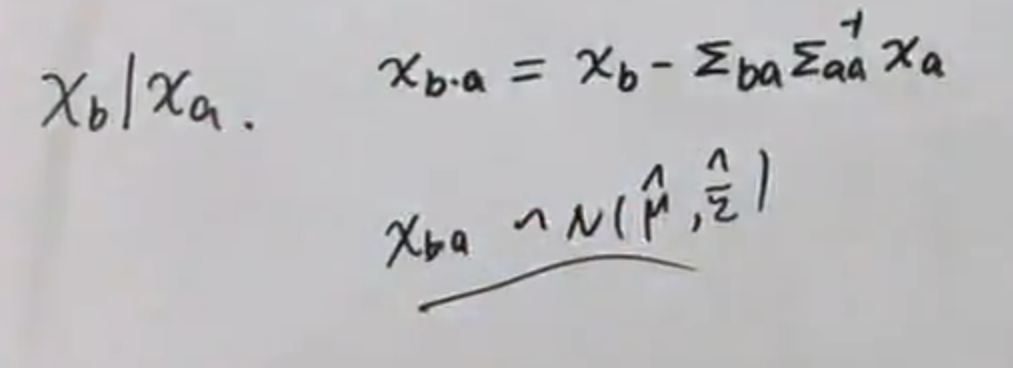 x_b|x_a. x_{b·a} = x_b - Σ_{ba} Σ_{aa}^{-1} x_a
x_{ba} ~ N(μ̂, Σ̂)